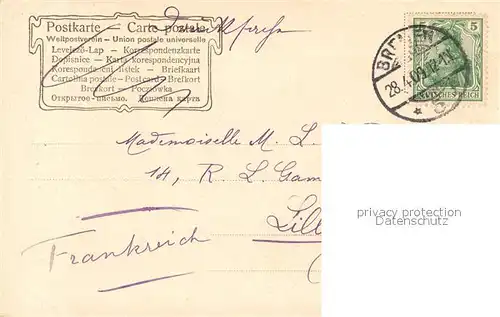 Postkarte — Carte postale
Weltpostverein – Union postale universelle
Levelező-Lap – Korrespondenzkarte
Dopisnice – Karta korespondencyjna
Korespondenční lístek – Briefkaart
Cartolina postale – Postcard – Brefkort
Brevkort – Poczłówka
Открытое письмо.
Drucksache
BREMEN
28.4.09.12-1N
5
DEUTSCHES REICH
Mademoiselle M. L.
14, R. L. Gam
Lill
Frankreich
privacy protection
Datenschutz